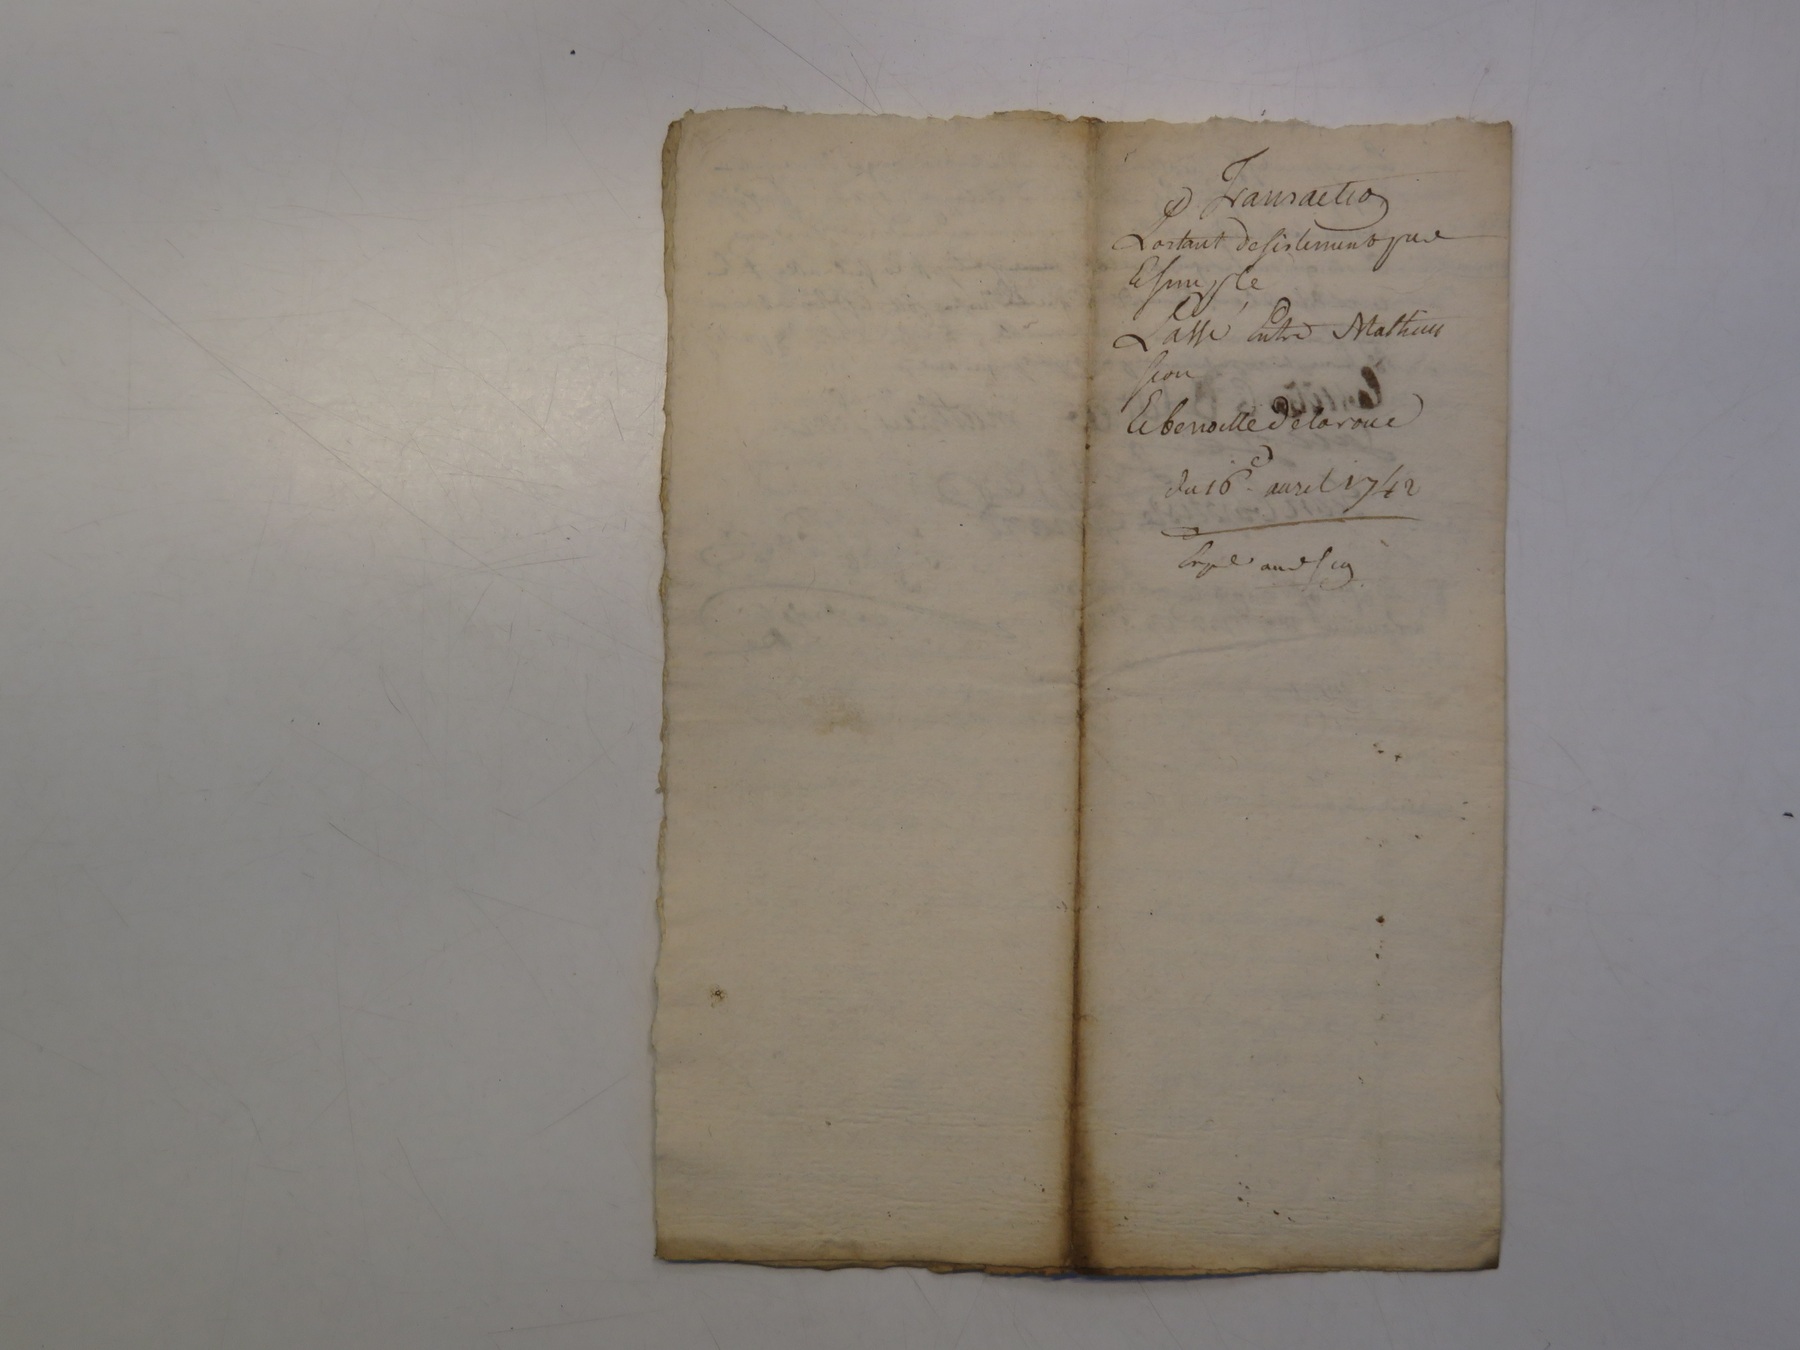 Transaction
Portant desistement pur
Et simple
Passé Entre Mathieu
sion
Et benoitte delaroue
du 16e. auril 1742
Expd